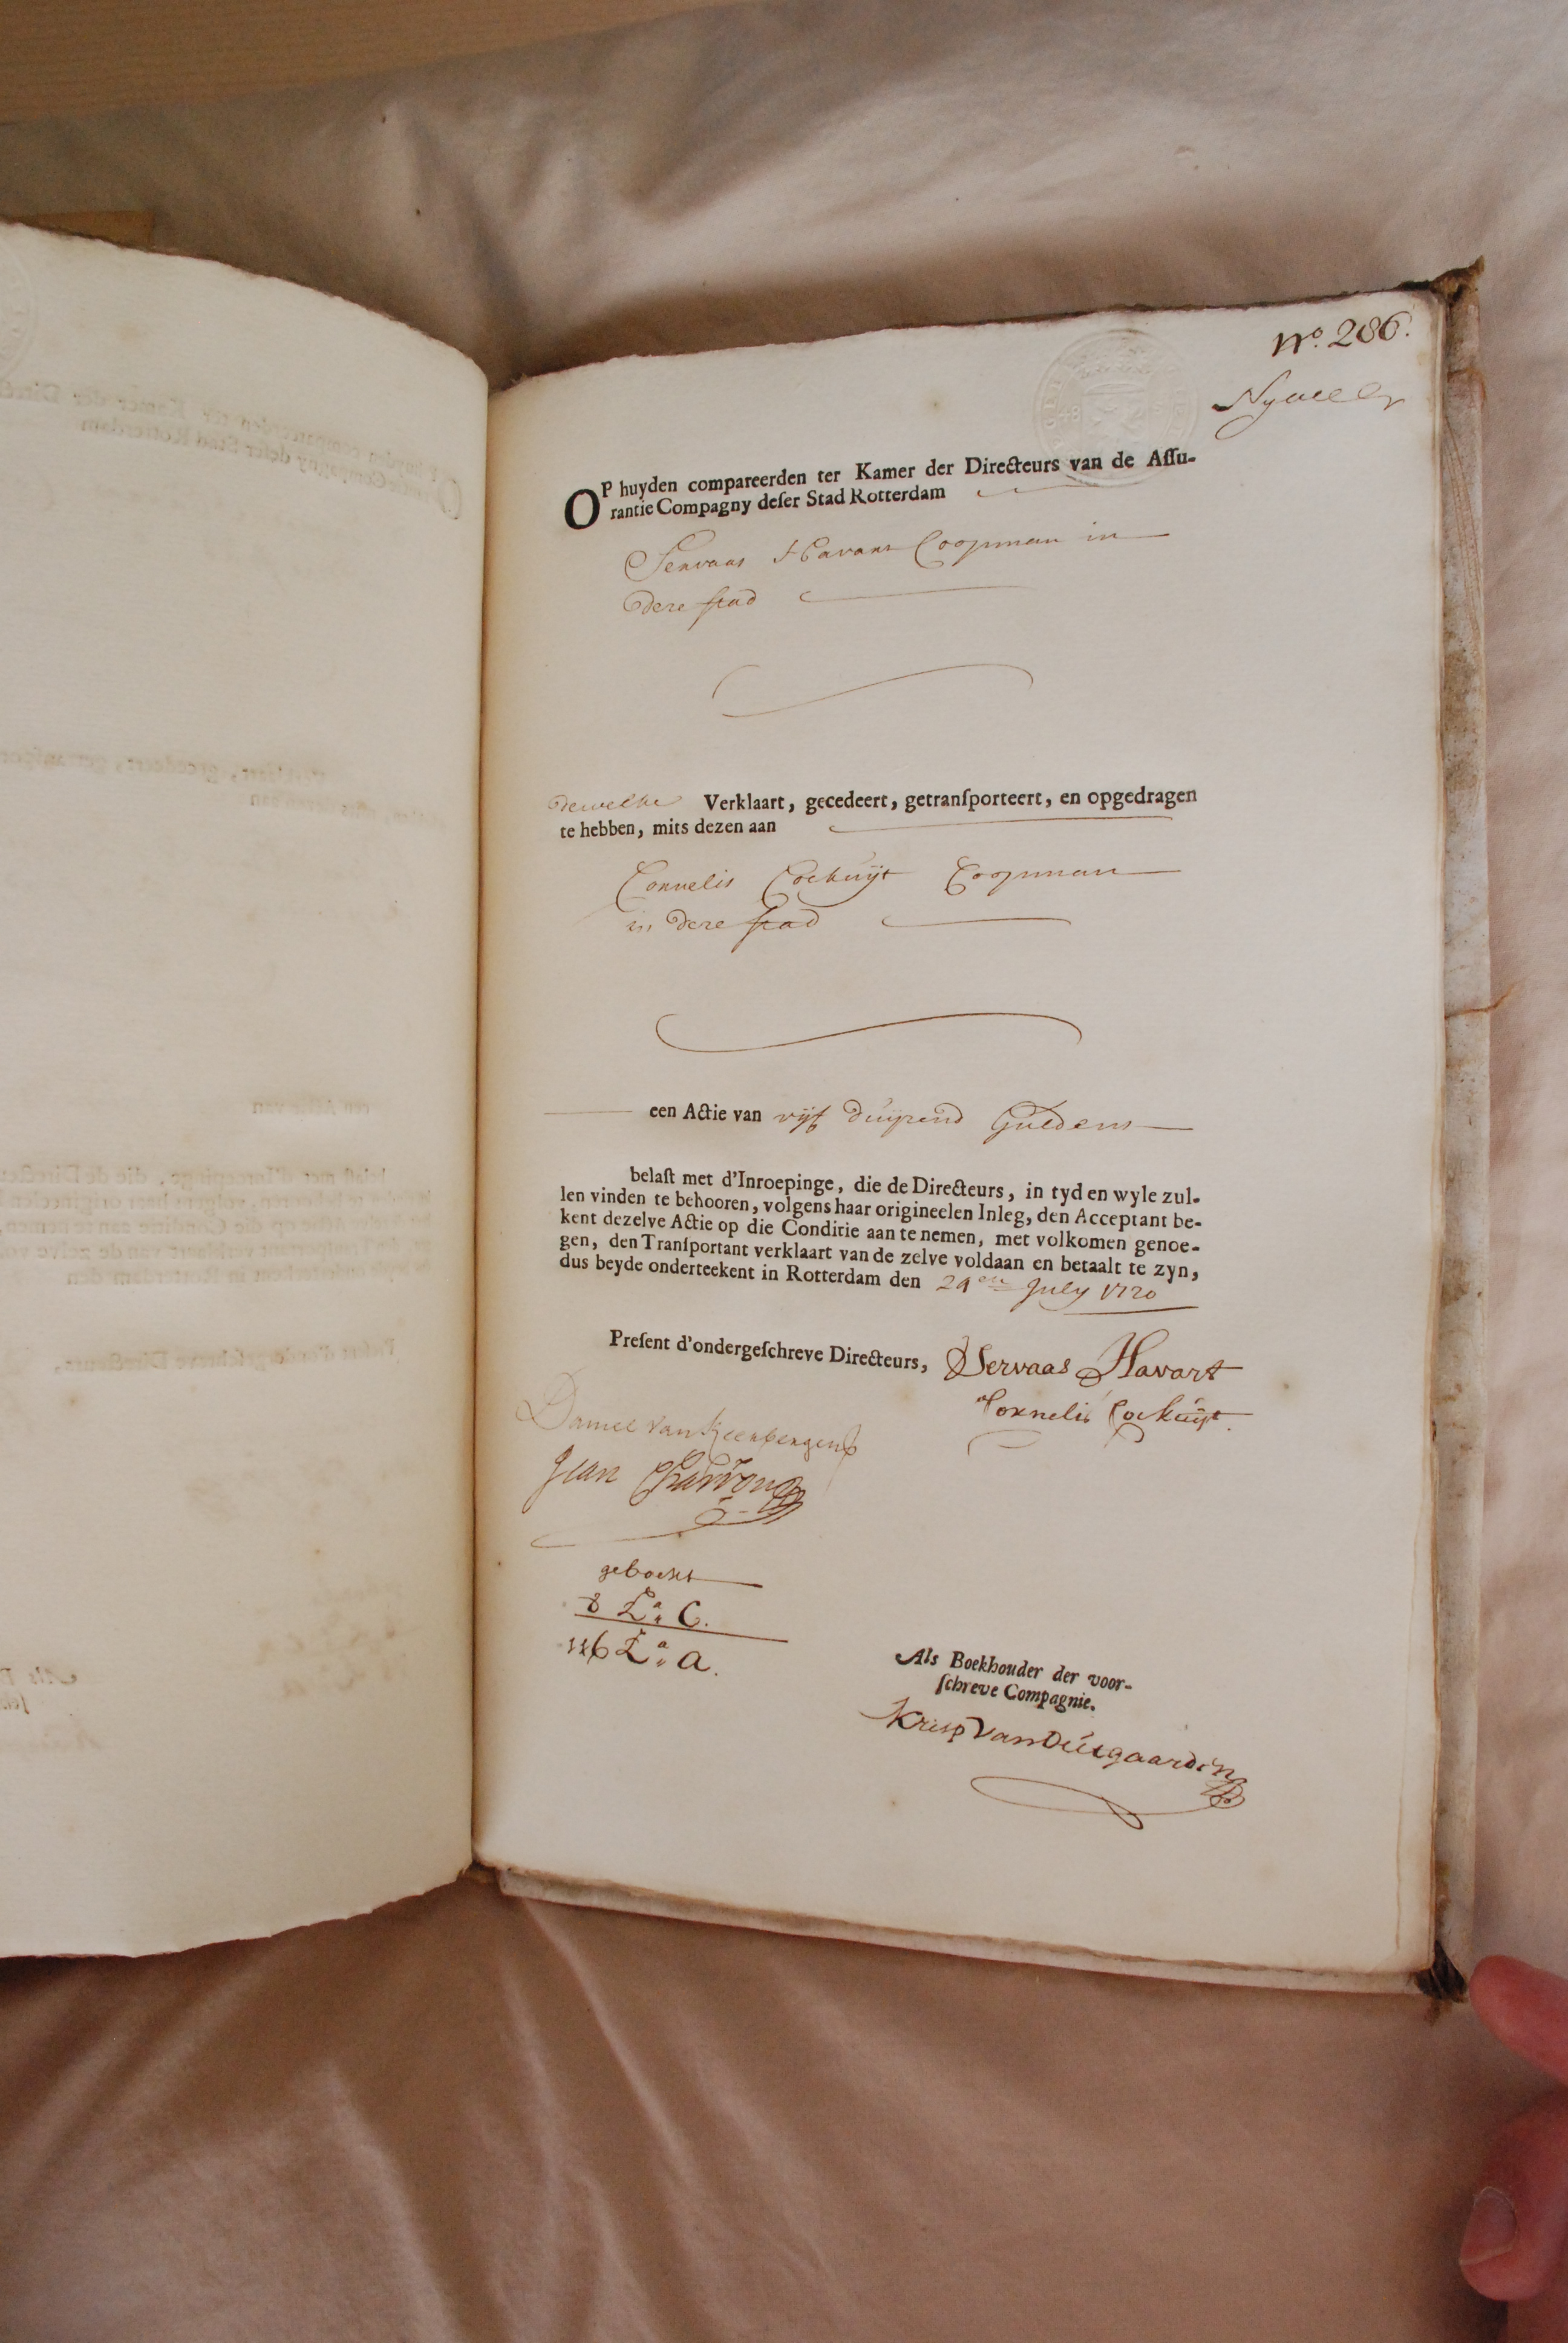 No. 286.
OP huyden compareerden ter Kamer der Directeurs van de Aſſu-
rantie Compagny deſer Stad Rotterdam
Servaas Havart Coopman in
dere stad
dewelke Verklaart, gecedeert, getranſporteert, en opgedragen
te hebben, mits dezen aan
Cornelis Cockuijt Coopman
in dere stad
een Actie van vijf duijsend Guldens
belaſt met d'Inroepinge, die de Directeurs, in tyd en wyle zul-
len vinden te behooren, volgens haar origineelen Inleg, den Acceptant be-
kent dezelve Actie op die Conditie aan te nemen, met volkomen genoe-
gen, den Tranſportant verklaart van de zelve voldaan en betaalt te zyn,
dus beyde onderteekent in Rotterdam den 29en July 1720
Preſent d'ondergeſchreve Directeurs, Servaas Havart
Cornelis Cockuijt
Jean
geboekt
8 La. C.
116 La. A.
Als Boekhouder der voor-
ſchreve Compagnie.